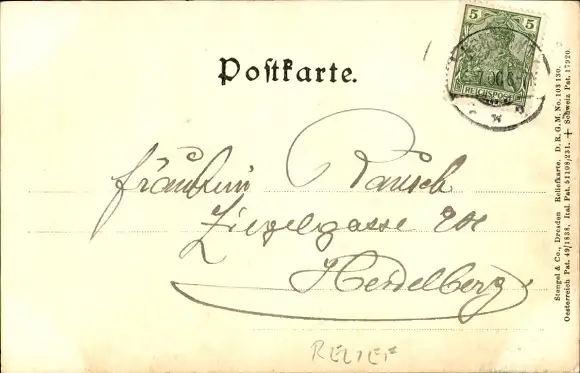 5 5
REICHSPOST
Postkarte.
Fräulein Rausch
Ziegelgasse
Heidelberg
RELIEF
Stengel & Co., Dresden Reliefkarte. D. R. G. M. No. 103 130.
Oesterreich Pat. 49/1838. Ital. Pat. 51108/231. + Schweiz Pat. 17920.